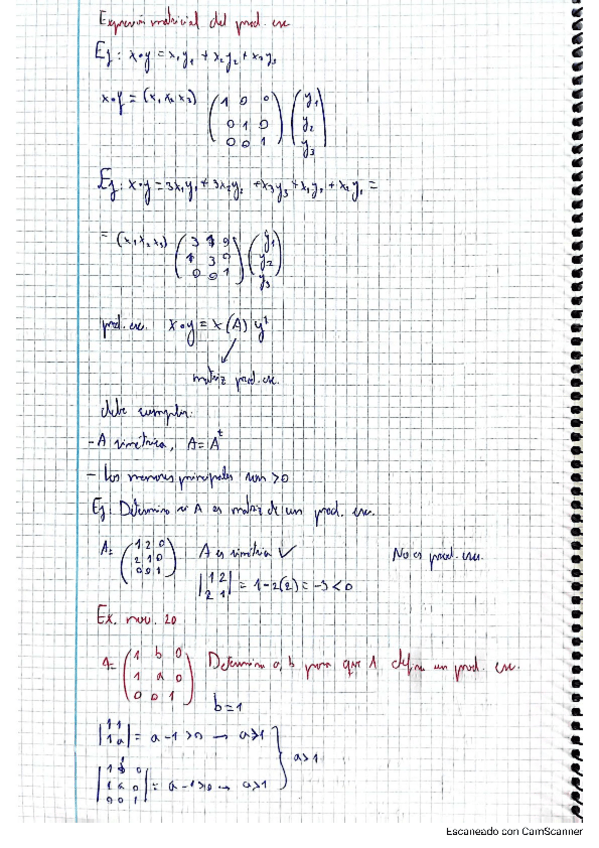 Expresión matricial del prod. esc
Ej: x•y = x₁y₁ + x₂y₂ + x₃y₃
x•y = (x₁ x₂ x₃) (1 0 0) (y₁)
(0 1 0) (y₂)
(0 0 1) (y₃)
Ej: x•y = 3x₁y₁ + 3x₂y₂ + x₃y₃ + x₁y₂ + x₂y₁ =
= (x₁ x₂ x₃) (3 1 0) (y₁)
(1 3 0) (y₂)
(0 0 1) (y₃)
prod. esc. x•y = x (A) yᵗ
matriz prod. esc.
debe cumplir:
- A simétrica, A = Aᵗ
- Los menores principales son >0
Ej: Determina si A es matriz de un prod. esc.
A = (1 2 0) A es simétrica ✓ No es prod. esc.
(2 1 0)
(0 0 1) |1 2|
|2 1| = 1-2(2) = -3 < 0
Ex. nov. 20
A = (1 b 0) Determina a, b para que A defina un prod. esc.
(1 a 0)
(0 0 1)
b=1
|1 1|
|1 a| = a-1>0 → a>1
a>1
|1 1 0|
|1 a 0| = a-1>0 → a>1
|0 0 1|
Escaneado con CamScanner